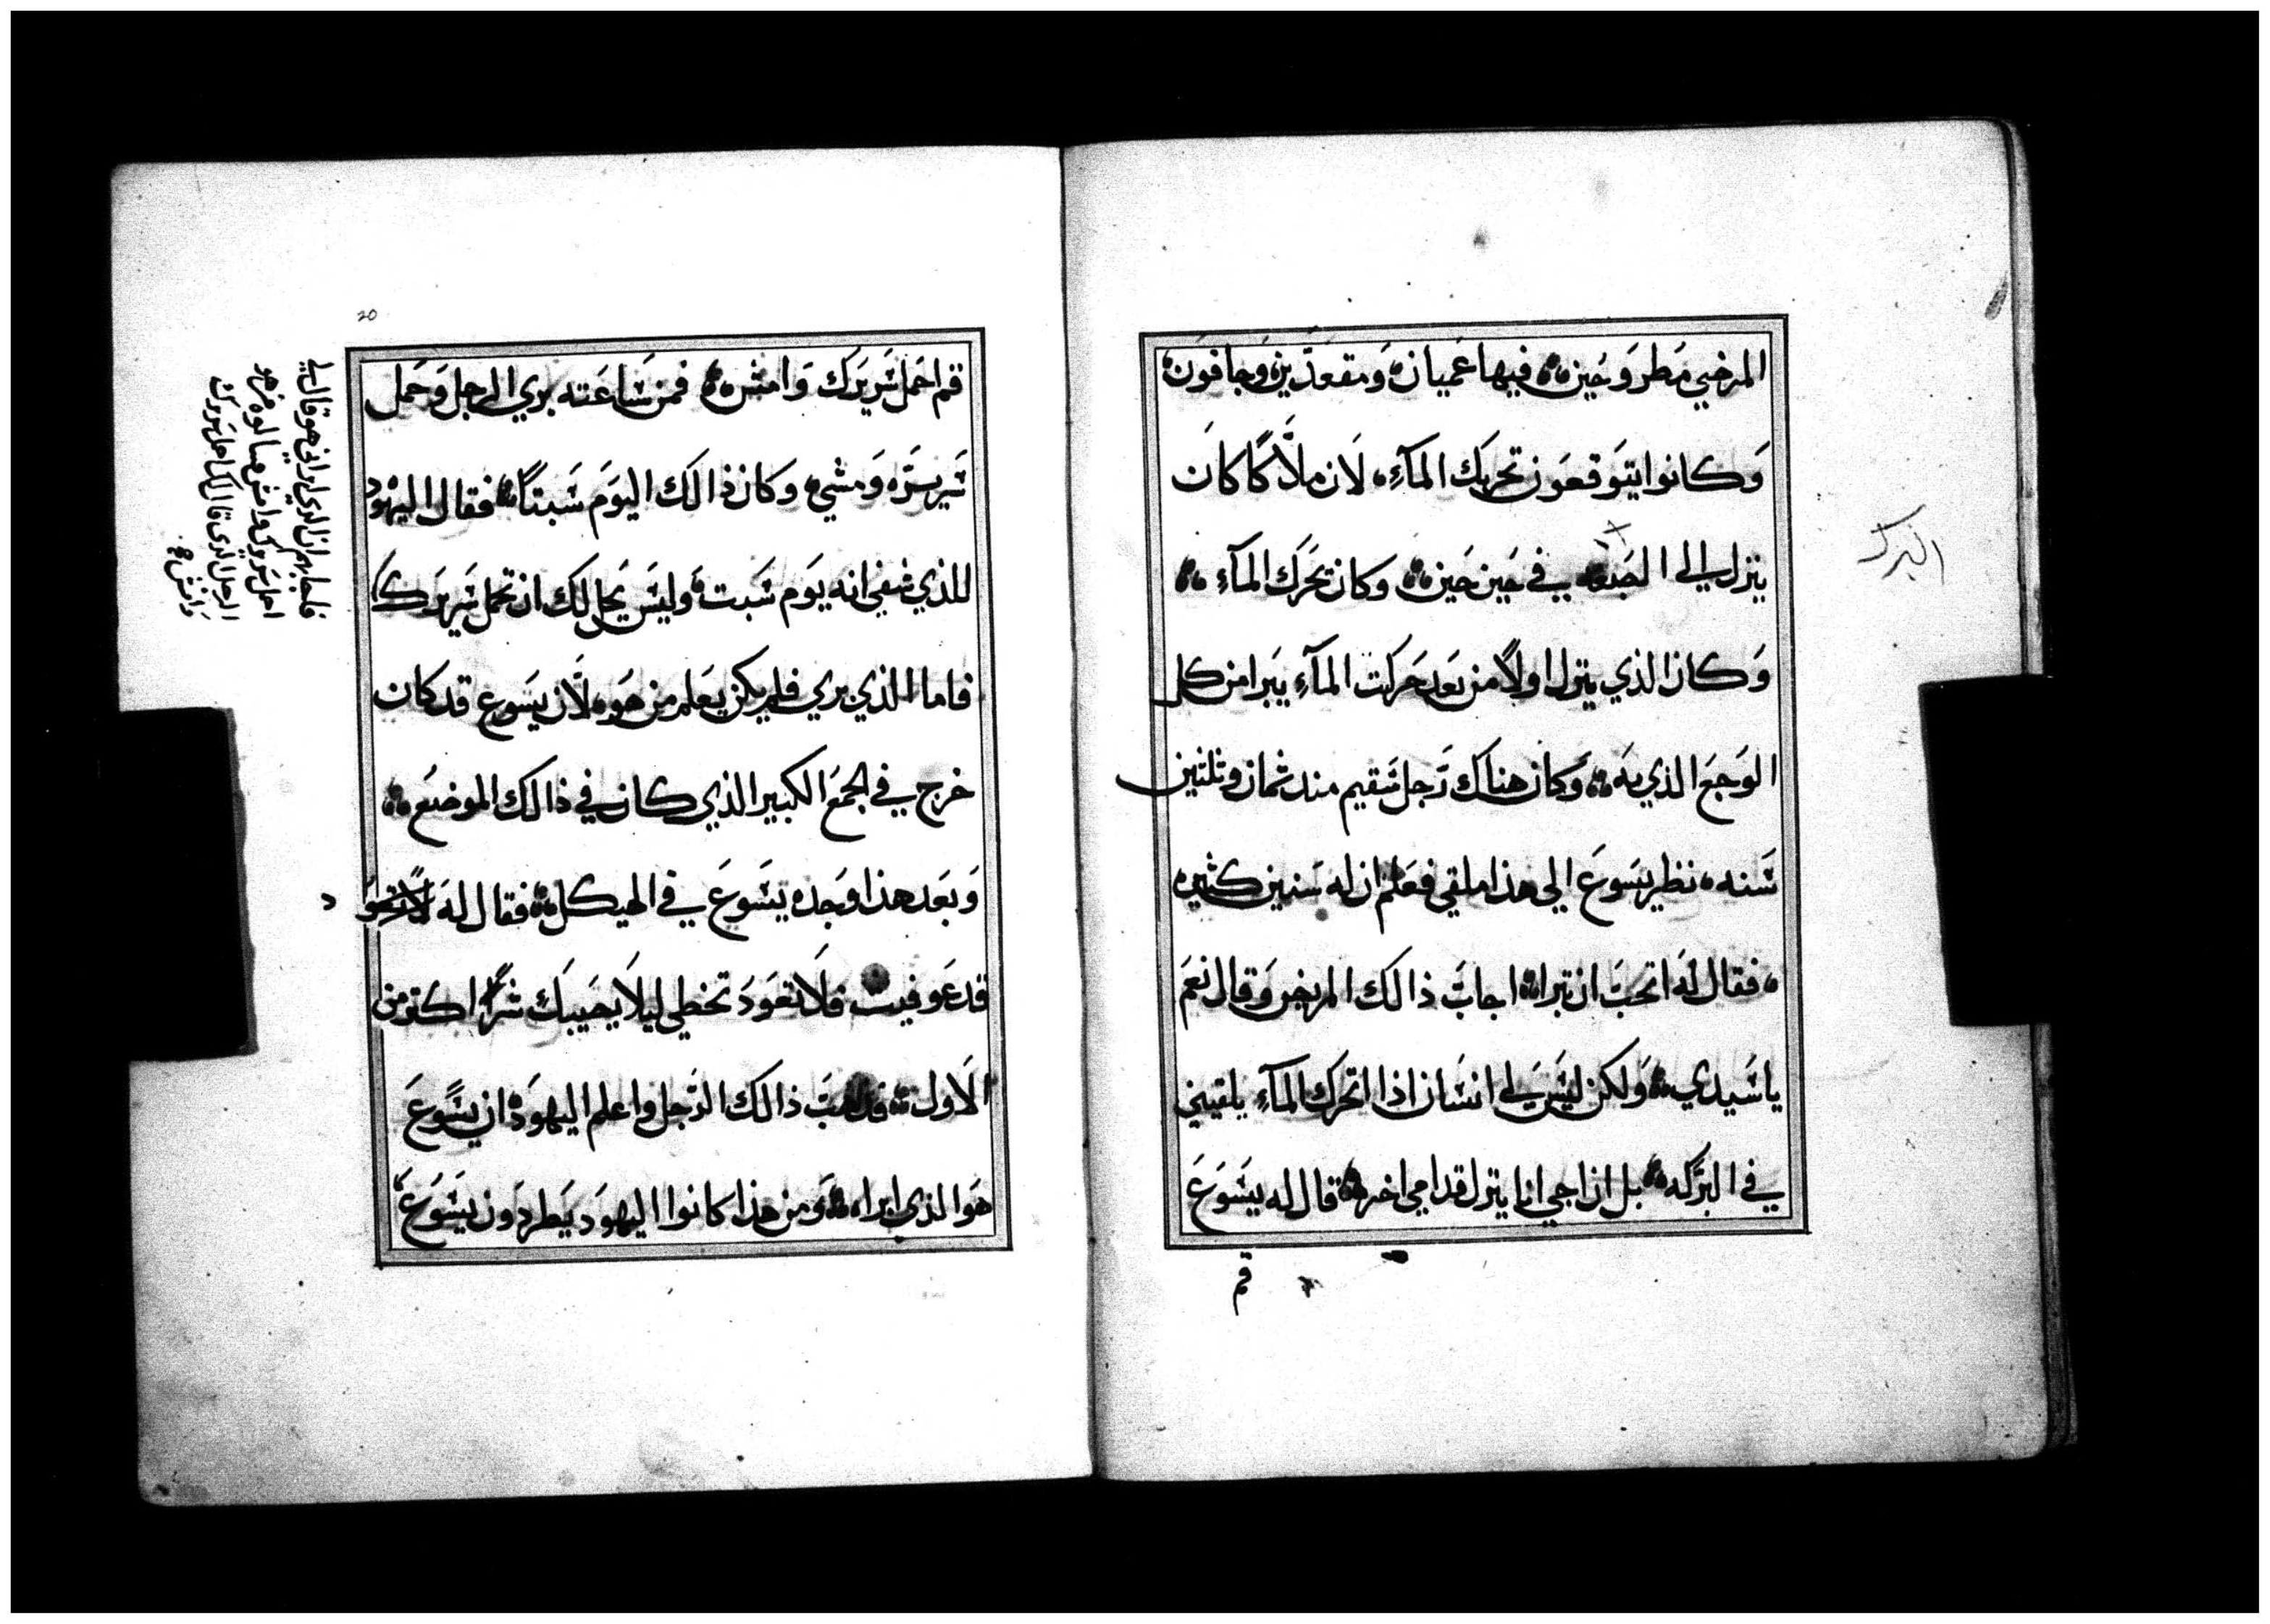 المرضي مطروحين فيها عميان ومقعدين وجافون
وكانوا يتوقعون تحريك المآء لان ملاًكا كان
ينزل الي الصبغه في حين حين وكان يحرك المآء
وكان الذي ينزل اولاً من بعد حركت المآء يبرا من كل
الوجع الذي به وكان هناك رجل سقيم مند ثمان وتلتين
سنه نظر يسوع الي هذا ملقي فعلم ان له سنين كثيره
فقال له اتحب ان تبرا اجاب ذالك المريض وقال نعم
يا سيدي ولكن ليس لي انسان اذا اتحرك المآء يلقيني
في البركه بل ان اجي انا ينزل قدامي اخر قال له يسوع
قم
البرك
20
قم احمل سريرك وامش فمن ساعته بري الرجل وحمل
سريره ومشي وكان ذالك اليوم سبتاً فقال اليهود
للذي شفي انه يوم سبت وليس يحل لك ان تحمل سريرك
فاما الذي بري فلم يكن يعلم من هو لان يسوع قد كان
خرج في الجمع الكبير الذي كان في ذالك الموضع
وبعد هذا وجده يسوع في الهيكل فقال له
قد عوفيت فلا تعود تخطي ليلا يصيبك شراً اكتر من
الاول فدهب ذالك الرجل واعلم اليهود ان يسوع
هو الذي ابراه ومن هذا كانوا اليهود يطردون يسوع
فاجابهم ان الدي ابراني هو قال لي
احمل سريرك وامش فسالوه من هو
الرجل الدي قال لك احمل سريرك
وامش